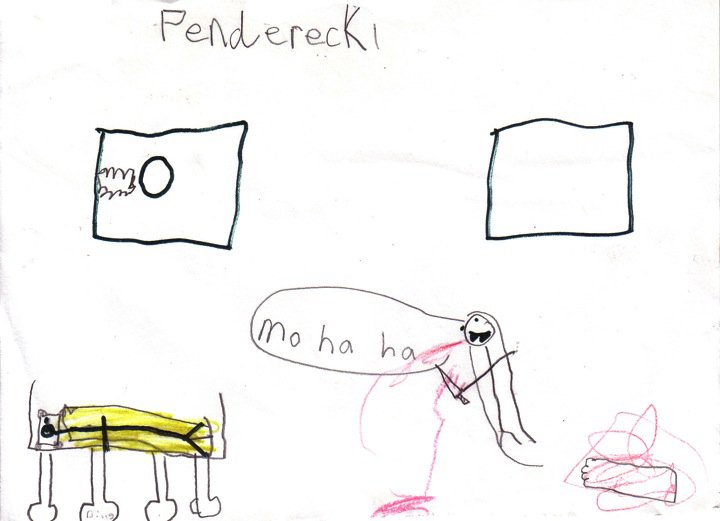 PenderecKi
mo ha ha